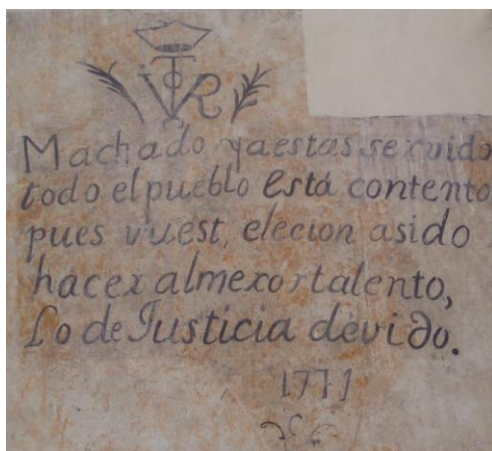 VTOR
Machado ya estas servido
todo el pueblo está contento
pues vuest, elecion asido
hacer almexor talento,
Lo de Justicia devido.
1771